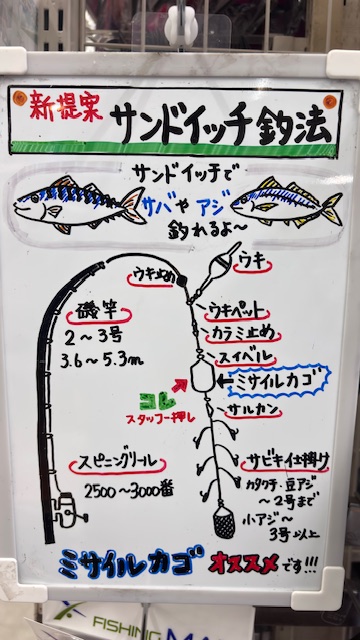 新提案 サンドイッチ釣法
サンドイッチで
サバや アジ
釣れるよ~
ウキ止め
ウキ
磯竿
2~3号
3.6~5.3m
ウキペット
カラミ止め
スイベル
ミサイルカゴ
コレ
スタッフ一押し
サルカン
スピニングリール
2500~3000番
サビキ仕掛け
カタクチ・豆アジ
~2号まで
小アジ~
3号以上
ミサイルカゴ オススメです!!!
FISHING